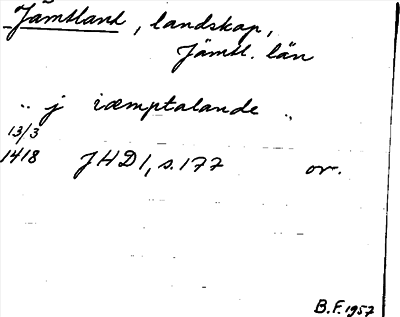 Jämtland, landskap,
Jämtl. län
„ j iæmptalande „
13/3
1418 JHD 1, s. 177 or.
B.F. 1957